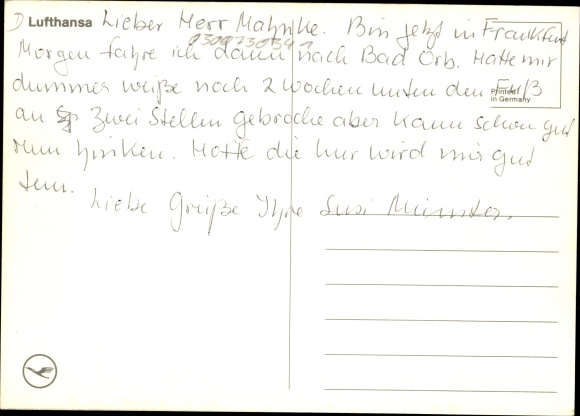 Lufthansa Lieber Herr Mahnke. Bin jetzt in Frankfurt
Morgen fahre ich dann nach Bad Orb. Hatte mir
dummer weiße noch 2 Wochen unten den Fuß
Printed in Germany
an Zwei Stellen gebroche aber kann schon gut
rum hinken. Hoffe die kur wird mir gut
tun.
Liebe Grüße Ihre Susi Münster.